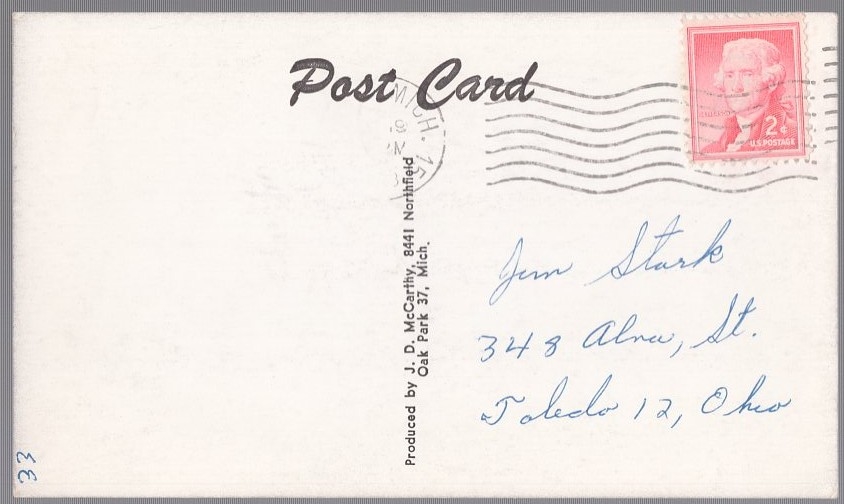 Post Card
MICH. 15
2¢
U.S. POSTAGE
Produced by J. D. McCarthy, 8441 Northfield
Oak Park 37, Mich.
Jim Stark
348 Alva, St.
Toledo 12, Ohio
33